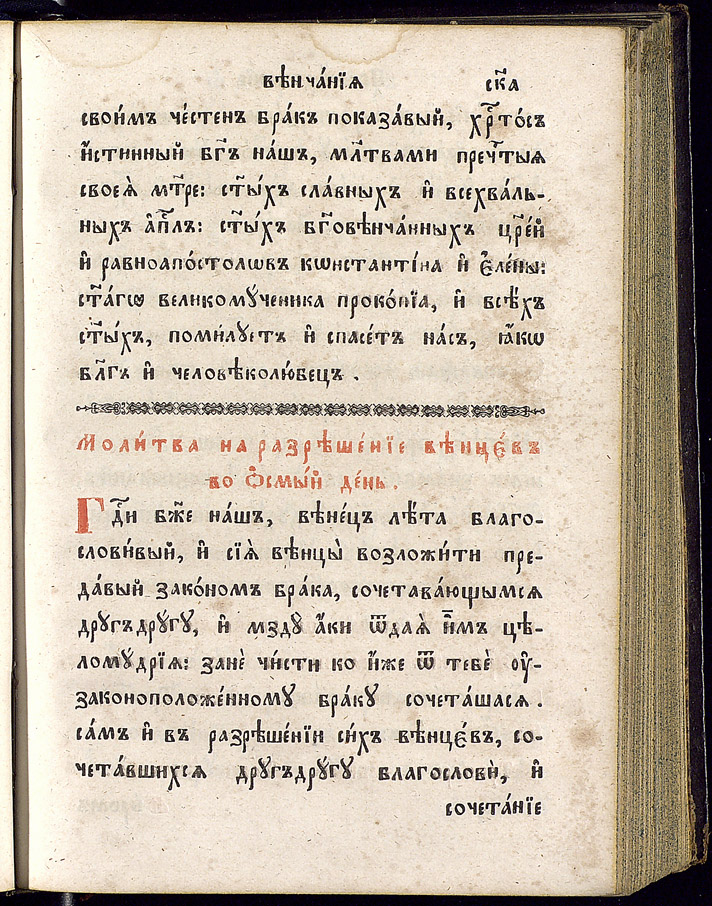 вѣнча́нїѧ ск҃а
свои́мъ че́стенъ бра́къ показа́вый, хр҇то́съ
и҆́стинный бг҃ъ на́шъ, мл҃твами пречⷭ҇тыѧ
своеѧ̀ мт҃ре: ст҃ы́хъ сла́вныхъ и҆ всехва́ль-
ныхъ а҆пⷭ҇лъ: ст҃ы́хъ бг҃овѣнча́нныхъ цр҃е́й
и҆ равноапо́столѡвъ кѡнстанті́на и҆ є҆ле́ны:
ст҃а́гѡ великомꙋ́ченика проко́пїа, и҆ всѣ́хъ
ст҃ы́хъ, поми́лꙋетъ и҆ спасе́тъ на́съ, ꙗ҆́кѡ
бл҃гъ и҆ человѣколю́бецъ .
Моли́тва на разрѣше́нїе вѣнцє́въ
во ѻ҆смы́й де́нь.
Гдⷭ҇и бж҃е на́шъ, вѣне́цъ лѣ́та благо-
слови́вый, и҆ сїѧ̀ вѣнцы̀ возложи́ти пре-
да́вый зако́номъ бра́ка, сочетава́ющымсѧ
дрꙋ́гъдрꙋ́гꙋ, и҆ мздꙋ̀ а҆́ки ѿдаѧ̀ и҆̀мъ цѣ-
ломꙋ́дрїѧ: занѐ чи́сти ко и҆́же ѿ тебѐ оу҆-
законоположе́нномꙋ бра́кꙋ сочета́шасѧ .
са́мъ и҆ въ разрѣше́нїи си́хъ вѣнцє́въ, со-
чета́вшихсѧ дрꙋ́гъдрꙋ́гꙋ благословѝ, и҆
сочета́нїе